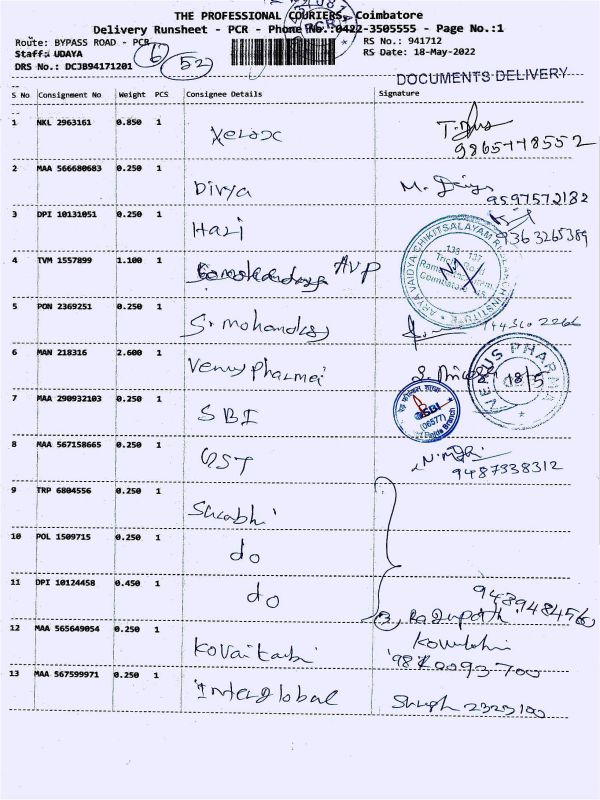 THE PROFESSIONAL COURIERS, Coimbatore
Delivery Runsheet - PCR - Phone No.:0422-3505555 - Page No.:1
Route: BYPASS ROAD - PCR
RS No.: 941712
Staff: UDAYA
RS Date: 18-May-2022
DRS No.: DCJB94171201
6 52
DOCUMENTS DELIVERY
S No Consignment No Weight PCS Consignee Details Signature
1 NKL 2963161 0.850 1 Xerox
2 MAA 566680683 0.250 1 Divya 9597572182
3 DPI 10131051 0.250 1 Hari 9363265389
4 TVM 1557899 1.100 1 AVP
ARYA VAIDYA CHIKITSALAYAM RESEARCH INSTITUTE
136, 137
Coimbatore
5 PON 2369251 0.250 1 Sr mohandas
6 MAN 218316 2.600 1 Venus pharma 18/5
VENUS PHARMA
7 MAA 290932103 0.250 1 SBI
SBI
(06577)
Branch
8 MAA 567158665 0.250 1 GST
9487338312
9 TRP 6804556 0.250 1 Surabhi
10 POL 1509715 0.250 1 do
11 DPI 10124458 0.450 1 do
12 MAA 565649054 0.250 1
13 MAA 567599971 0.250 1 Interglobal 2323100